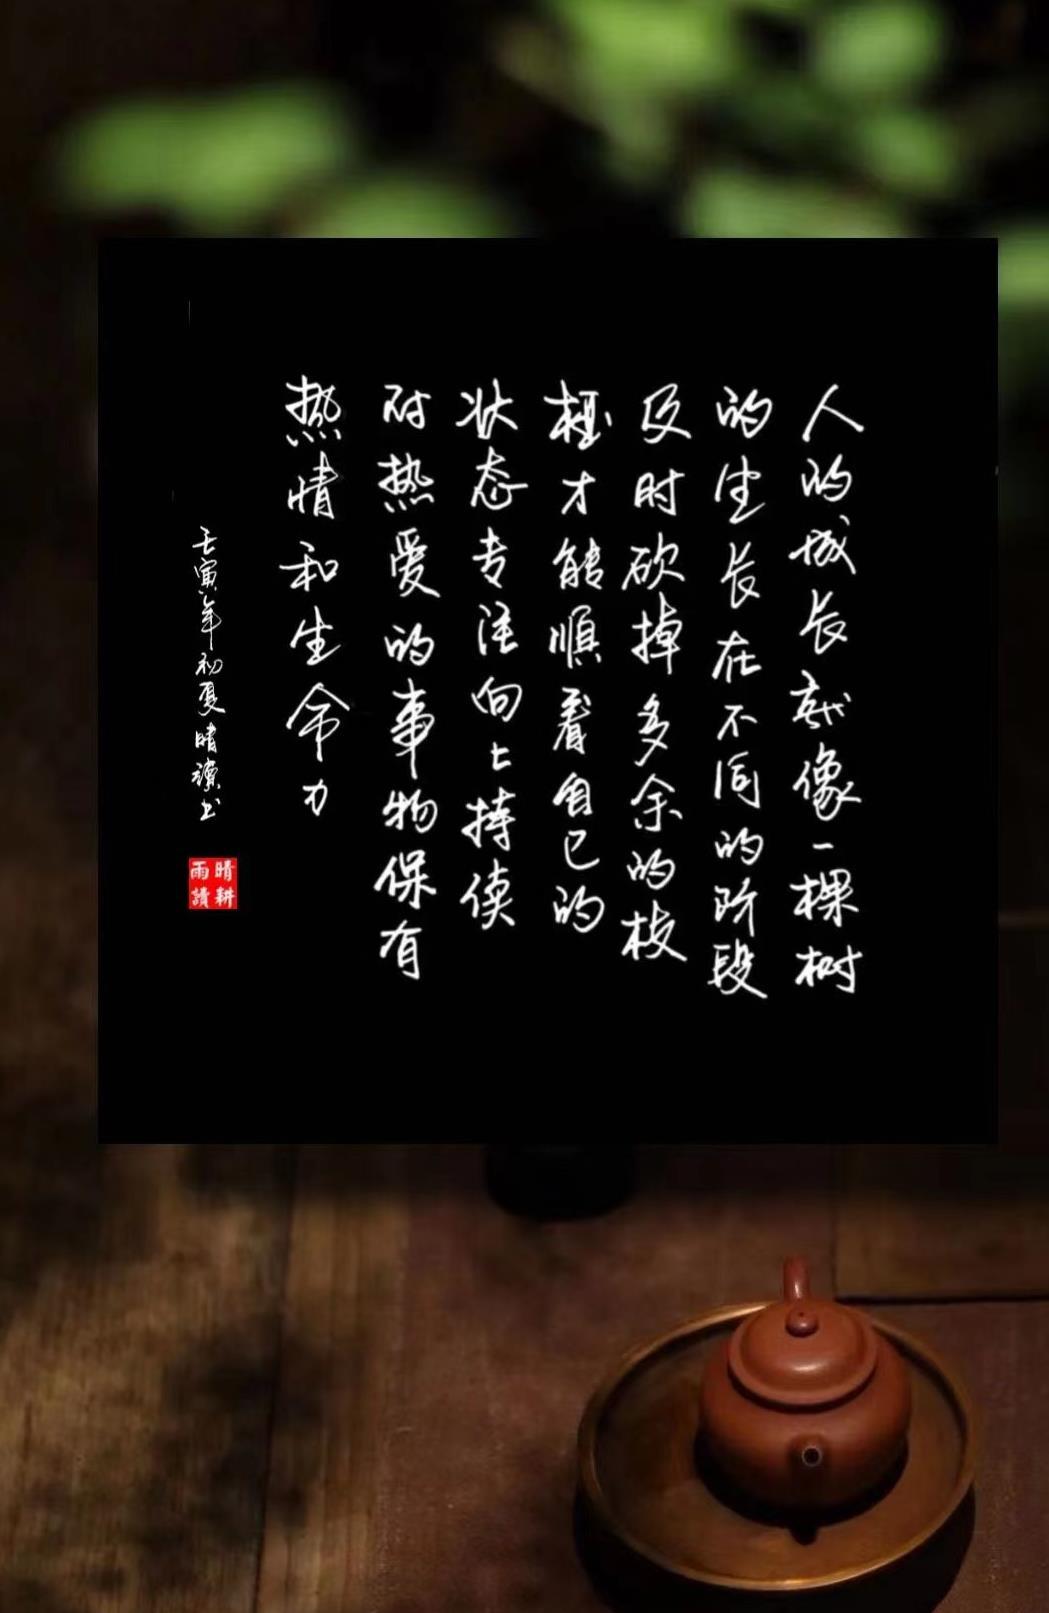 人的成长就像一棵树
的生长在不同的阶段
及时砍掉多余的枝
桠才能顺着自己的
状态专注向上持续
对热爱的事物保有
热情和生命力
壬寅年初夏晴读书
晴耕
雨讀